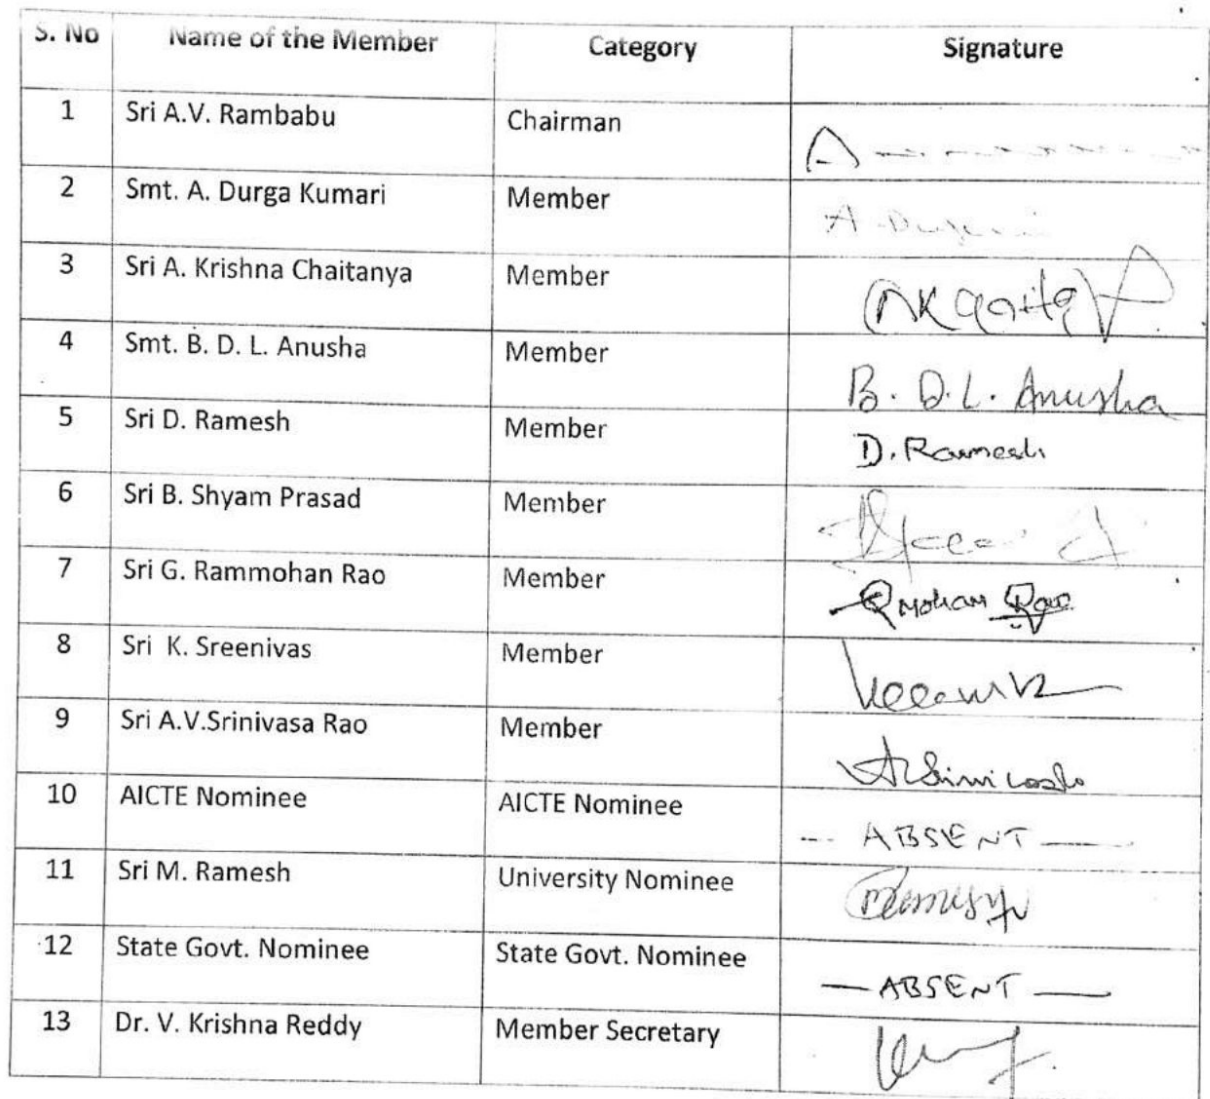 S. No Name of the Member Category Signature
1 Sri A.V. Rambabu Chairman
2 Smt. A. Durga Kumari Member
3 Sri A. Krishna Chaitanya Member
4 Smt. B. D. L. Anusha Member B. D. L. Anusha
5 Sri D. Ramesh Member D. Ramesh
6 Sri B. Shyam Prasad Member
7 Sri G. Rammohan Rao Member Rmohan Rao
8 Sri K. Sreenivas Member
9 Sri A.V.Srinivasa Rao Member
10 AICTE Nominee AICTE Nominee -- ABSENT —
11 Sri M. Ramesh University Nominee
12 State Govt. Nominee State Govt. Nominee — ABSENT —
13 Dr. V. Krishna Reddy Member Secretary